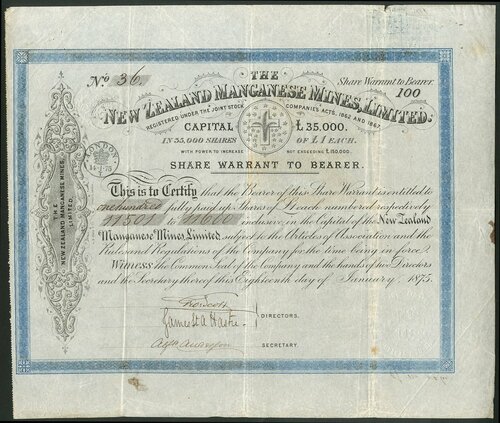 No. 36.
THE
Share Warrant to Bearer.
100
NEW ZEALAND MANGANESE MINES, LIMITED.
REGISTERED UNDER THE JOINT STOCK COMPANIES ACTS, 1862 AND 1867.
CAPITAL £35,000.
IN 35,000 SHARES OF £1 EACH.
WITH POWER TO INCREASE NOT EXCEEDING £150,000.
SHARE WARRANT TO BEARER.
This is to Certify that the Bearer of this Share Warrant is entitled to
one hundred fully paid up Shares of £1 each numbered respectively
11501 to 11600 inclusive, in the Capital of the New Zealand
Manganese Mines Limited subject to the Articles of Association and the
Rules and Regulations of the Company for the time being in force.
Witness the Common Seal of the Company and the hands of two Directors
and the Secretary thereof this Eighteenth day of January, 1875.
DIRECTORS.
SECRETARY.
THE
NEW ZEALAND MANGANESE MINES,
LIMITED.
LONDON